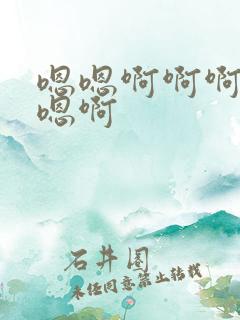 嗯嗯啊啊啊
嗯啊
石井圈
未经同意禁止转载